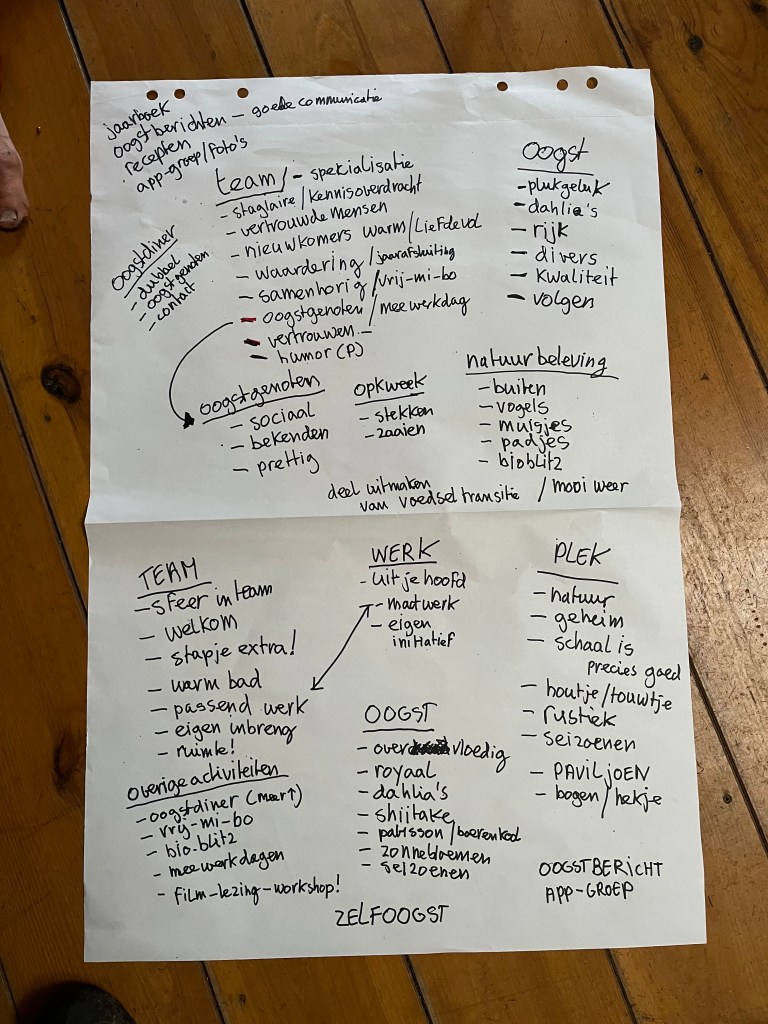 jaarboek
oogstberichten – goede communicatie
recepten
app-groep/foto's
team/ – specialisatie
– stagiaire/kennisoverdracht
– vertrouwde mensen
– nieuwkomers warm/liefdevol
– waardering/jaarafsluiting
– samenhorig/vrij-mi-bo
– oogstgenoten/meewerkdag
– vertrouwen –
– humor (P)
oogstdiner
– dubbel
– oogstgenoten
– contact
oogst
– plukgeluk
– dahlia's
– rijk
– divers
– kwaliteit
– volgen
oogstgenoten
– sociaal
– bekenden
– prettig
opkweek
– stekken
– zaaien
natuurbeleving
– buiten
– vogels
– muisjes
– padjes
– bioblitz
deel uitmaken
van voedseltransitie / mooi weer
TEAM
– sfeer in team
– welkom
– stapje extra!
– warm bad
– passend werk
– eigen inbreng
– ruimte!
overige activiteiten
– oogstdiner (meer↑)
– vrij-mi-bo
– bio-blitz
– meewerkdagen
– film-lezing-workshop!
WERK
– uit je hoofd
– maatwerk
– eigen
initiatief
OOGST
– overvloedig
– royaal
– dahlia's
– shiitake
– patisson/boerenkool
– zonnebloemen
– seizoenen
PLEK
– natuur
– geheim
– schaal is
precies goed
– houtje/touwtje
– rustiek
– seizoenen
– PAVILJOEN
– bogen/hekje
OOGSTBERICHT
APP-GROEP
ZELFOOGST